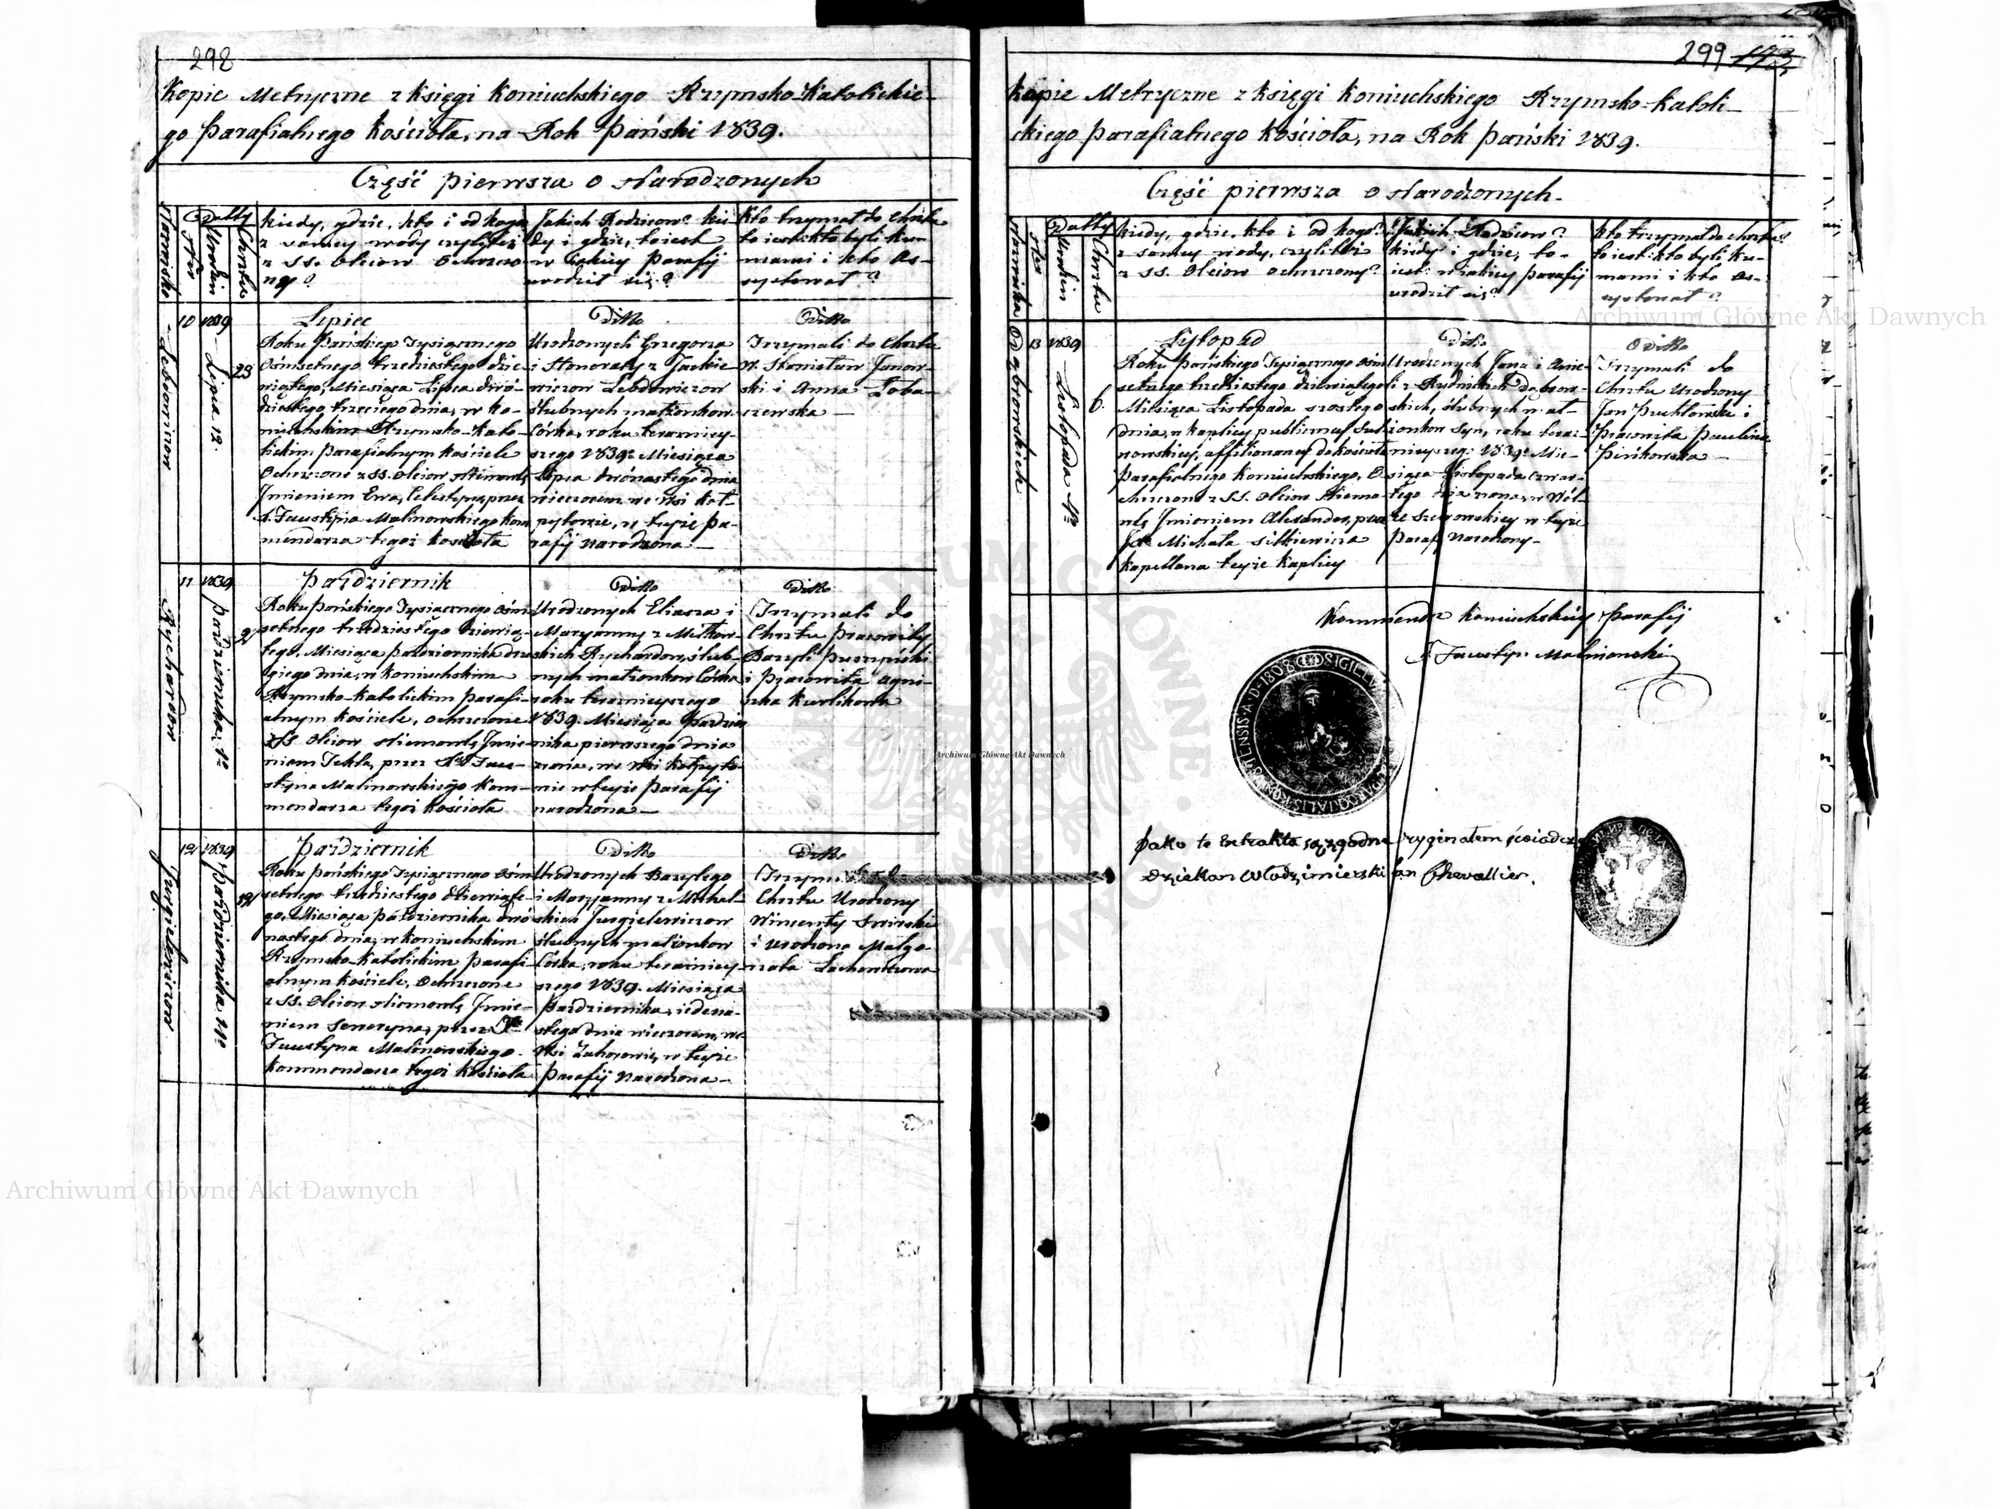 298
Kopie Metryczne z Księgi Koniuchskiego Rzymsko-Katolickie-
go Parafialnego Kościoła, na Rok Pański 1839.
Część pierwsza o Narodzonych
Nazwisko
Nro
Datty
Urodzin
Chrztu
kiedy, gdzie, kto i od kogo
z samey wody czyliteż
z SS. Oleiow Ochrzczo-
ny?
Jakich Rodzicow? kie-
dy i gdzie, to iest
w Jakiey Parafij
urodził się?
Kto trzymał do Chrztu
to iest: kto byli Kum-
mami i kto As-
systował?
Lebdowiczow
10
1839
Lipca 12.
23
Lipiec
Roku Pańskiego Tysiącznego
Ośmsetnego trzdziestego dzie-
wiątego, Miesiąca Lipca dwu-
dziestego trzeciego dnia, w Ko-
niuchskim Rzymsko-Kato-
lickim Parafialnym Kościele
Ochrzczone z SS. Oleiow Niemowle
Jmieniem Ewa, Celestyna, przez
X. Faustyna Malinowskiego Kom-
mendarza tegoż Kościoła
Ditto
Urodzonych Grzegorza
i Honoraty z Jackie-
wiczow Lebdowiczow
Ślubnych małżonkow
Córka, roku teraźniey-
szego 1839. Miesiąca
Lipca dwónastego dnia
wieczorem, we Wsi Koł-
pytowie, w teyże Pa-
rafij narodzona —
Ditto
Trzymali do Chrztu
W. Stanisław Janow-
ski i Anna Łoba-
czewska —
Rychardow
11
1839
Pazdziernika, 1.
2
Pazdziernik
Roku Pańskiego Tysiącznego Ośm-
setnego trzdziestego Dziewią-
tego, Miesiąca Pazdziernika dru-
giego dnia, w Koniuchskim
Rzymsko-Katolickim Parafi-
alnym Kościele, Ochrzczone
z SS. Oleiow Niemowle, Jmie-
niem Tekla, przez X. Fau-
styna Malinowskiego Kom-
mendarza tegoż Kościoła
Ditto
Urodzonych Eliasza i
Maryanny z Miłkow-
skich Rychardow, ślub-
nych małżonkow Córka
roku teraźnieyszego
1839. Miesiąca Pazdzier-
nika pierwszego dnia
zrana, we Wsi Kołpyto-
wie w teyże Parafij
narodzona —
Ditto
Trzymali do
Chrztu Pracowity
Bazyli
i Pracowita Agni-
szka Kurlikowa
Jurgielewiczow
12
1839
Pazdziernika 11.
12
Pazdziernik
Roku Pańskiego Tysiącznego Ośm-
setnego trzdziestego dziewiąte-
go, Miesiąca Pazdziernika dwó-
nastego dnia, w Koniuchskim
Rzymsko-Katolickim Parafi-
alnym Kościele, Ochrzczone
z SS. Oleiow Niemowle, Jmie-
niem Seweryna, przez X.
Faustyna Malinowskiego
Kommendarza tegoż Kościoła
Ditto
Urodzonych Bazylego
i Maryanny z Michal-
skich Jurgielewiczow
Ślubnych małżonkow
Córka, roku teraźniey-
szego 1839. Miesiąca
Pazdziernika, iedena-
stego dnia wieczorem, we
Wsi Zahorowie, w teyże
Parafij Narodzona —
Ditto
Chrztu Urodzony
Wincenty Swirski
i Urodzona Małgo-
rzata Lachowiczowa
299
Kopie Metryczne z Księgi Koniuchskiego Rzymsko-Katoli-
ckiego Parafialnego Kościoła, na Rok Pański 1839.
Część pierwsza o Narodzonych.
Nazwisko
Nro
Datty
Urodzin
Chrztu
kiedy, gdzie, kto i od kogo?
z samey wody, czyliteż
z SS. Oleiow Ochrzczony?
Jakich Rodzicow?
kiedy i gdzie, to-
iest: w iakiey Parafij
urodził się?
Kto trzymał do Chrztu?
to iest: kto byli Ku-
mami i kto As-
systował?
Dąbrowskich
13
1839
Listopada 4.
6.
Listopad
Roku Pańskiego Tysiącznego Ośm-
setnego trzdziestego dziewiątego
Miesiąca Listopada szostego
dnia, w Kaplicy publiczney
affiliowaney do Kościoła
Parafialnego Koniuchskiego, O-
chrzczone z SS. Oleiow Niemo-
wle, Jmieniem Alexander, przez
X. Michała Sitkiewicza
Kapellana teyże Kaplicy
Ditto
Urodzonych Jana i Anie-
li z Rudnickich Dąbrow-
skich, Ślubnych mał-
żonkow Syn, roku teraz-
nieyszeg: 1839. Mie-
siąca Listopada czwar-
tego dnia zrana, w
teyże
Paraf: Narodzony —
Ditto
Trzymali do
Chrztu Urodzony
Jan Puchłowski i
Pracowita Paulina
Pińkowska —
Kommendarz Koniuchskiey Parafij
X. Faustyn Malinowski
SIGILLUM
A. D. 1808
Jako te Extrakta są zgodne z oryginałem świadczę
Dziekan Włodzimierski Jan Chevallier.
Archiwum Główne Akt Dawnych
Archiwum Główne Akt Dawnych
Archiwum Główne Akt Dawnych